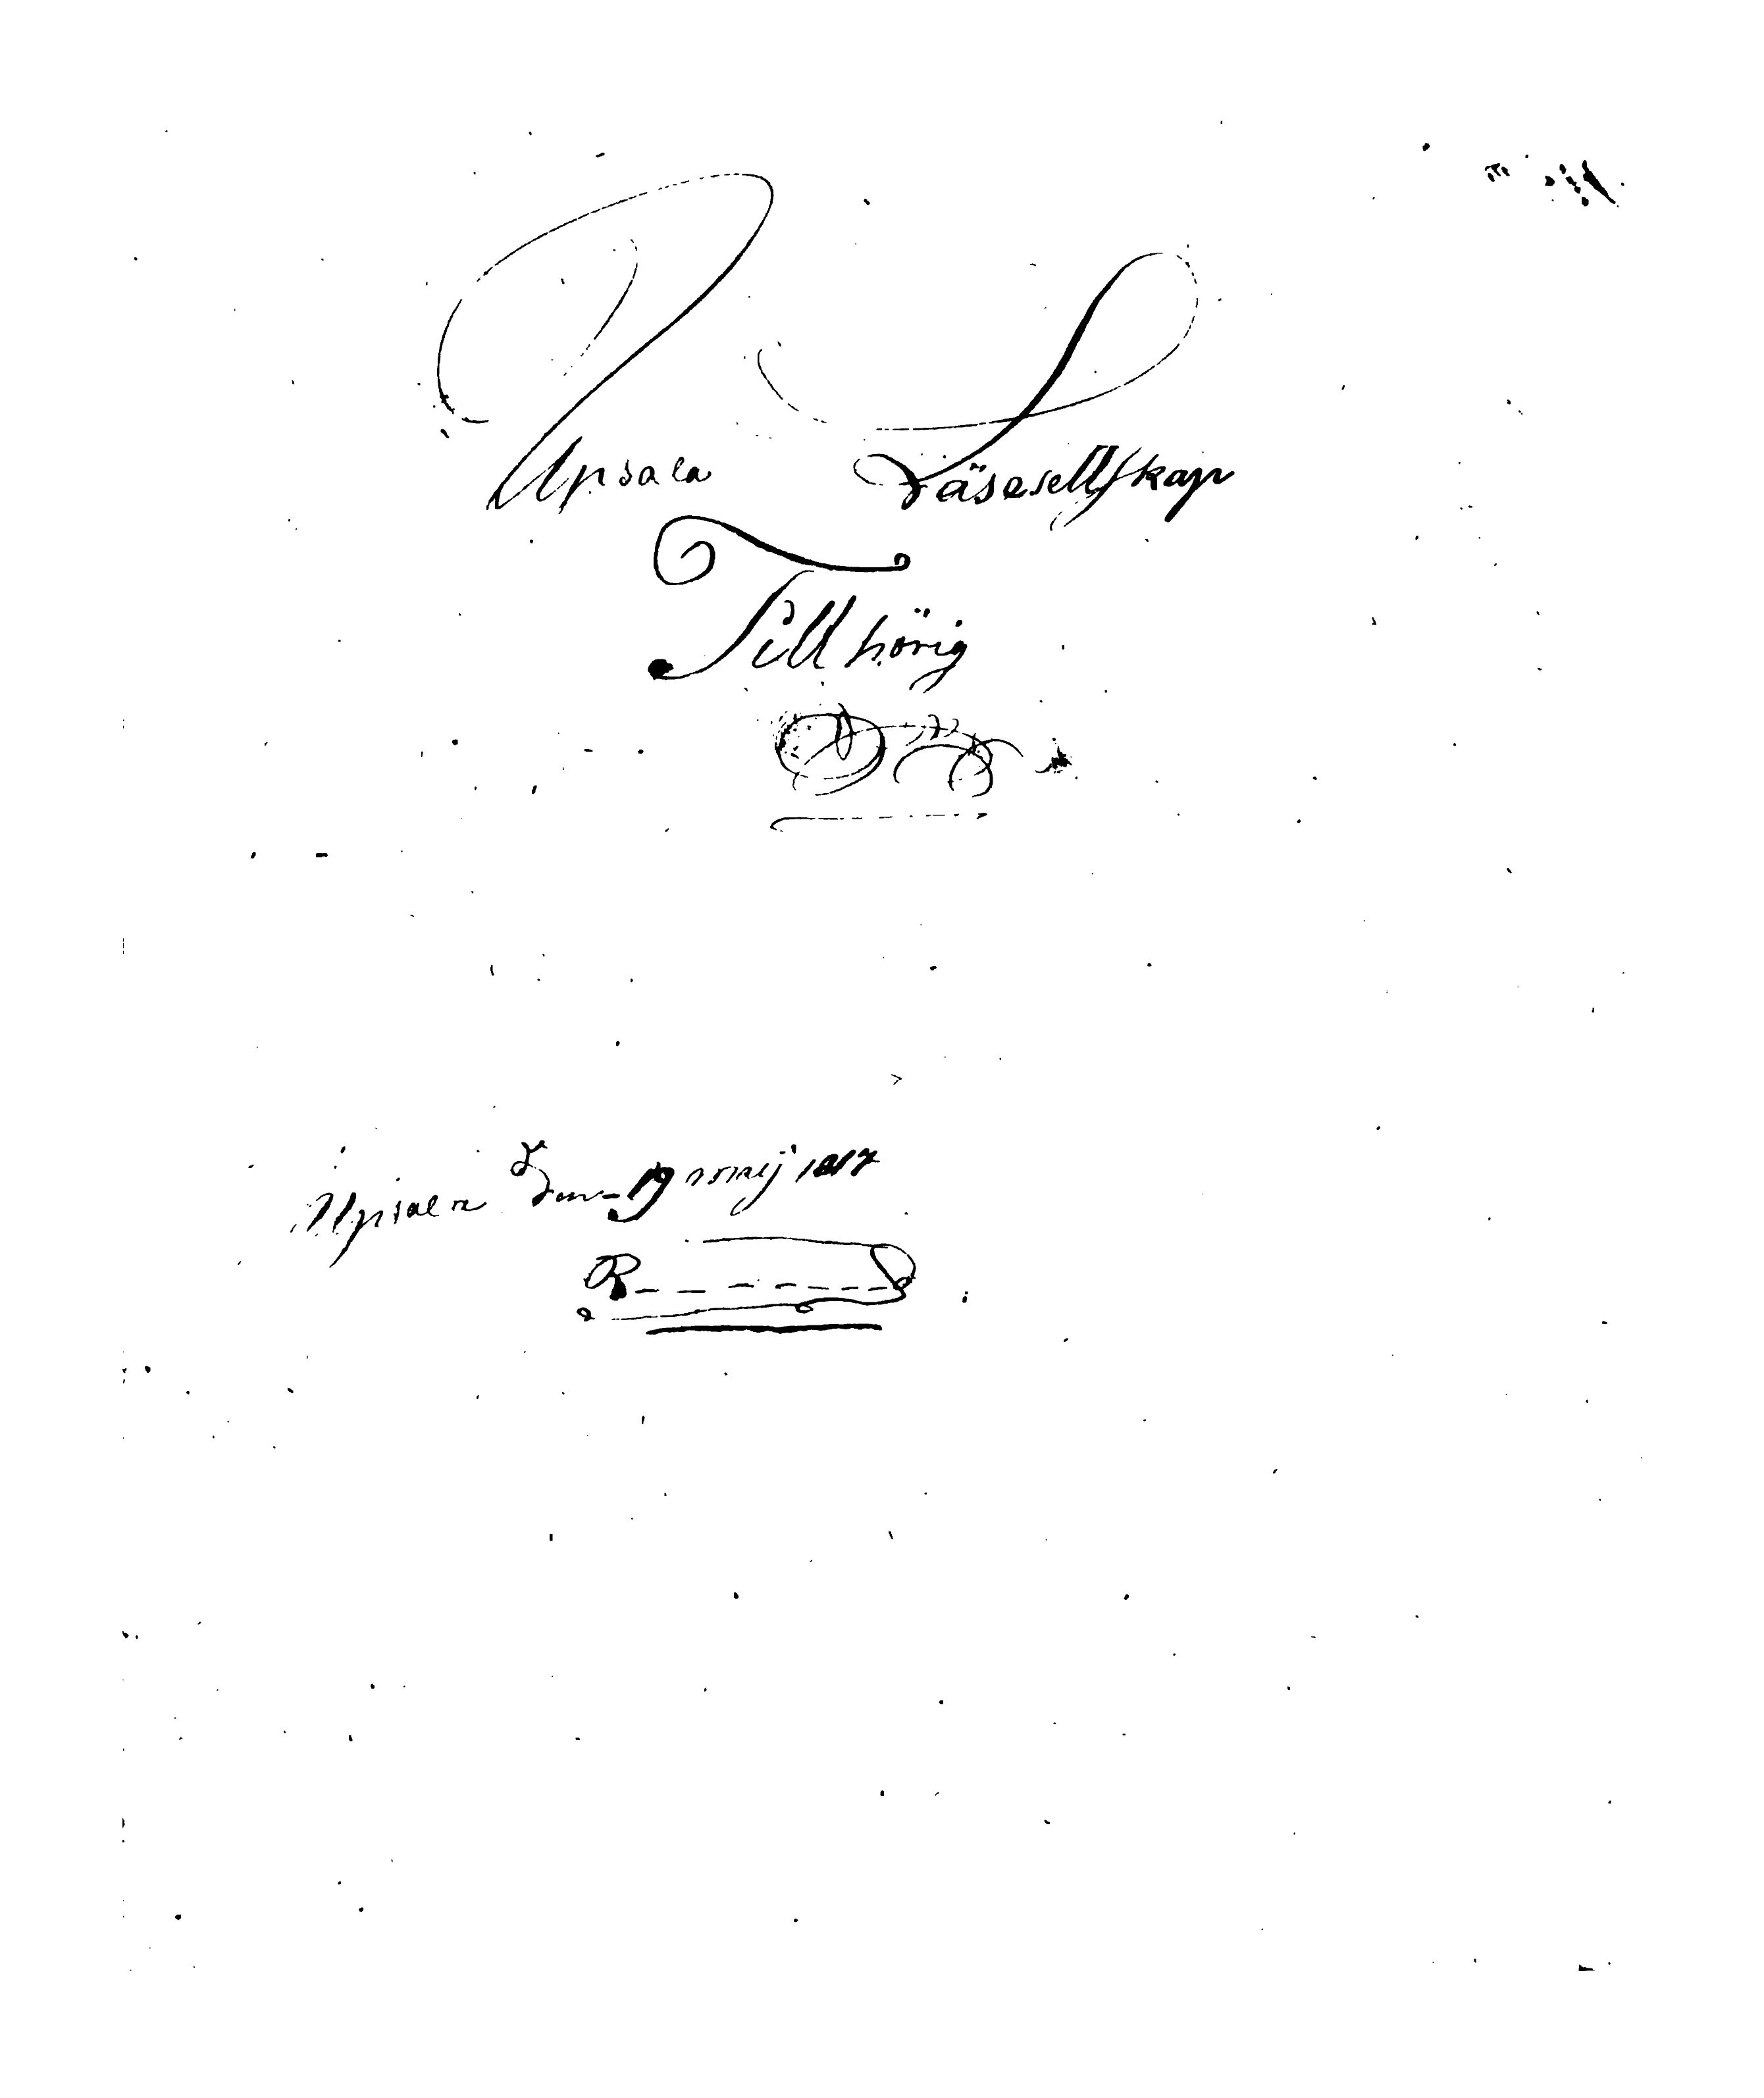 Upsala Läsesellskap
Till hörig
Upsala Den 19 maij 1817
R